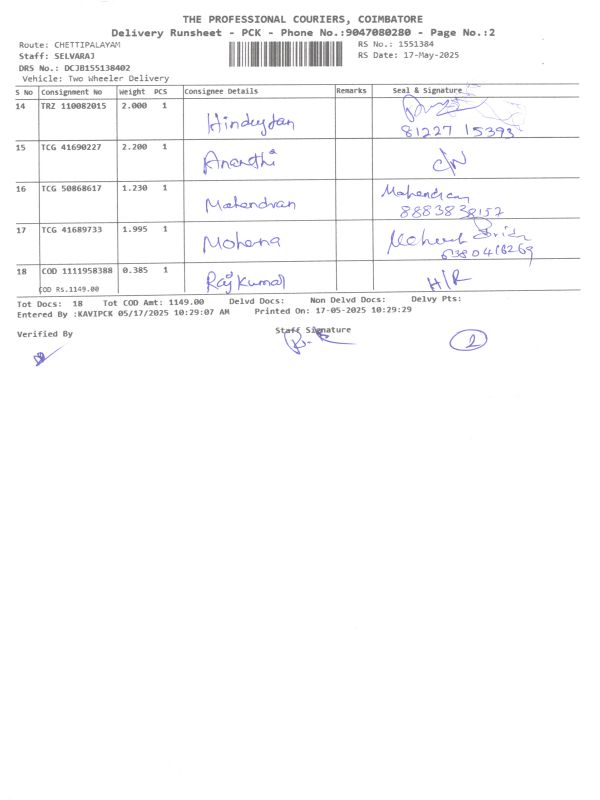 THE PROFESSIONAL COURIERS, COIMBATORE
Delivery Runsheet - PCK - Phone No.:9047080280 - Page No.:2
Route: CHETTIPALAYAM RS No.: 1551384
Staff: SELVARAJ RS Date: 17-May-2025
DRS No.: DCJB155138402
Vehicle: Two Wheeler Delivery
S No Consignment No Weight PCS Consignee Details Remarks Seal & Signature
14 TRZ 110082015 2.000 1 Hindustan
81227 15393
15 TCG 41690227 2.200 1 Ananthi C/N
16 TCG 50868617 1.230 1 Mahendran Mahendran
8883838157
17 TCG 41689733 1.995 1 Mohana
6380418269
18 COD 1111958388 0.385 1 Raj Kumar H/R
COD Rs.1149.00
Tot Docs: 18 Tot COD Amt: 1149.00 Delvd Docs: Non Delvd Docs: Delvy Pts:
Entered By :KAVIPCK 05/17/2025 10:29:07 AM Printed On: 17-05-2025 10:29:29
Verified By Staff Signature
2